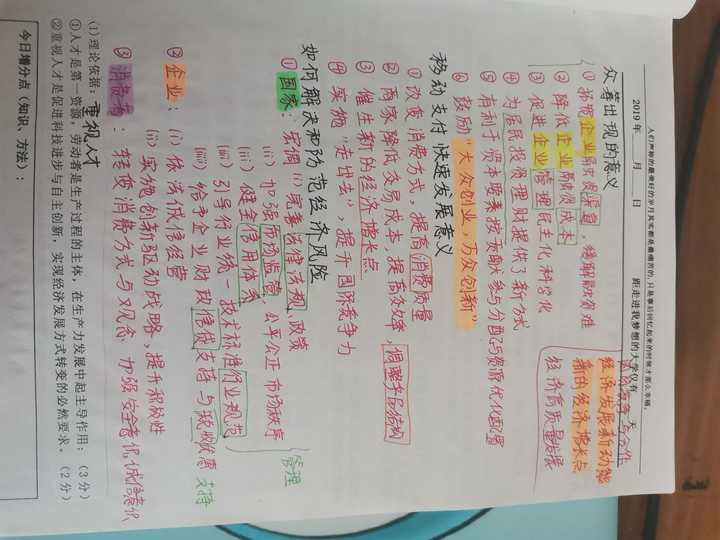 人们声称的最美好的岁月其实都是最痛苦的，只是事后回忆起来的时候才那么幸福。
2019年 月 日 距走进我梦想的大学仅有 天
众筹出现的意义
①拓宽企业融资渠道，缓解融资难
②降低企业融资成本
③促进企业管理民主化科学化
④为居民投资理财提供了新方式
⑤有利于资本要素按贡献参与分配与资源优化配置
⑥鼓励"大众创业，万众创新"
经济发展新动能
新的经济增长点
经济高质量发展
移动支付快速发展意义
①改变消费方式，提高消费质量
②商家降低交易成本，提高效率，调整产品结构
③催生新的经济增长点
④实施"走出去"，提升国际竞争力
如何解决和防范经济风险
①国家：宏调 (i)完善法律法规，政策
(ii)加强市场监管，公平公正 市场秩序
(iii)健全信用体系
(iii)引导行业统一技术标准行业规范
(iiii)给予企业财政信贷支持与税收优惠支持
管理
②企业：(i)依法诚信经营
(ii)实施创新驱动战略，提升积极性
③消费者：转变消费方式与观念 加强安全意识诚信意识
(1)理论依据：重视人才
①人才是第一资源，劳动者是生产过程的主体，在生产力发展中起主导作用；（3分）
②重视人才是促进科技进步与自主创新，实现经济发展方式转变的必然要求。（2分）
今日增分点（知识、方法）：